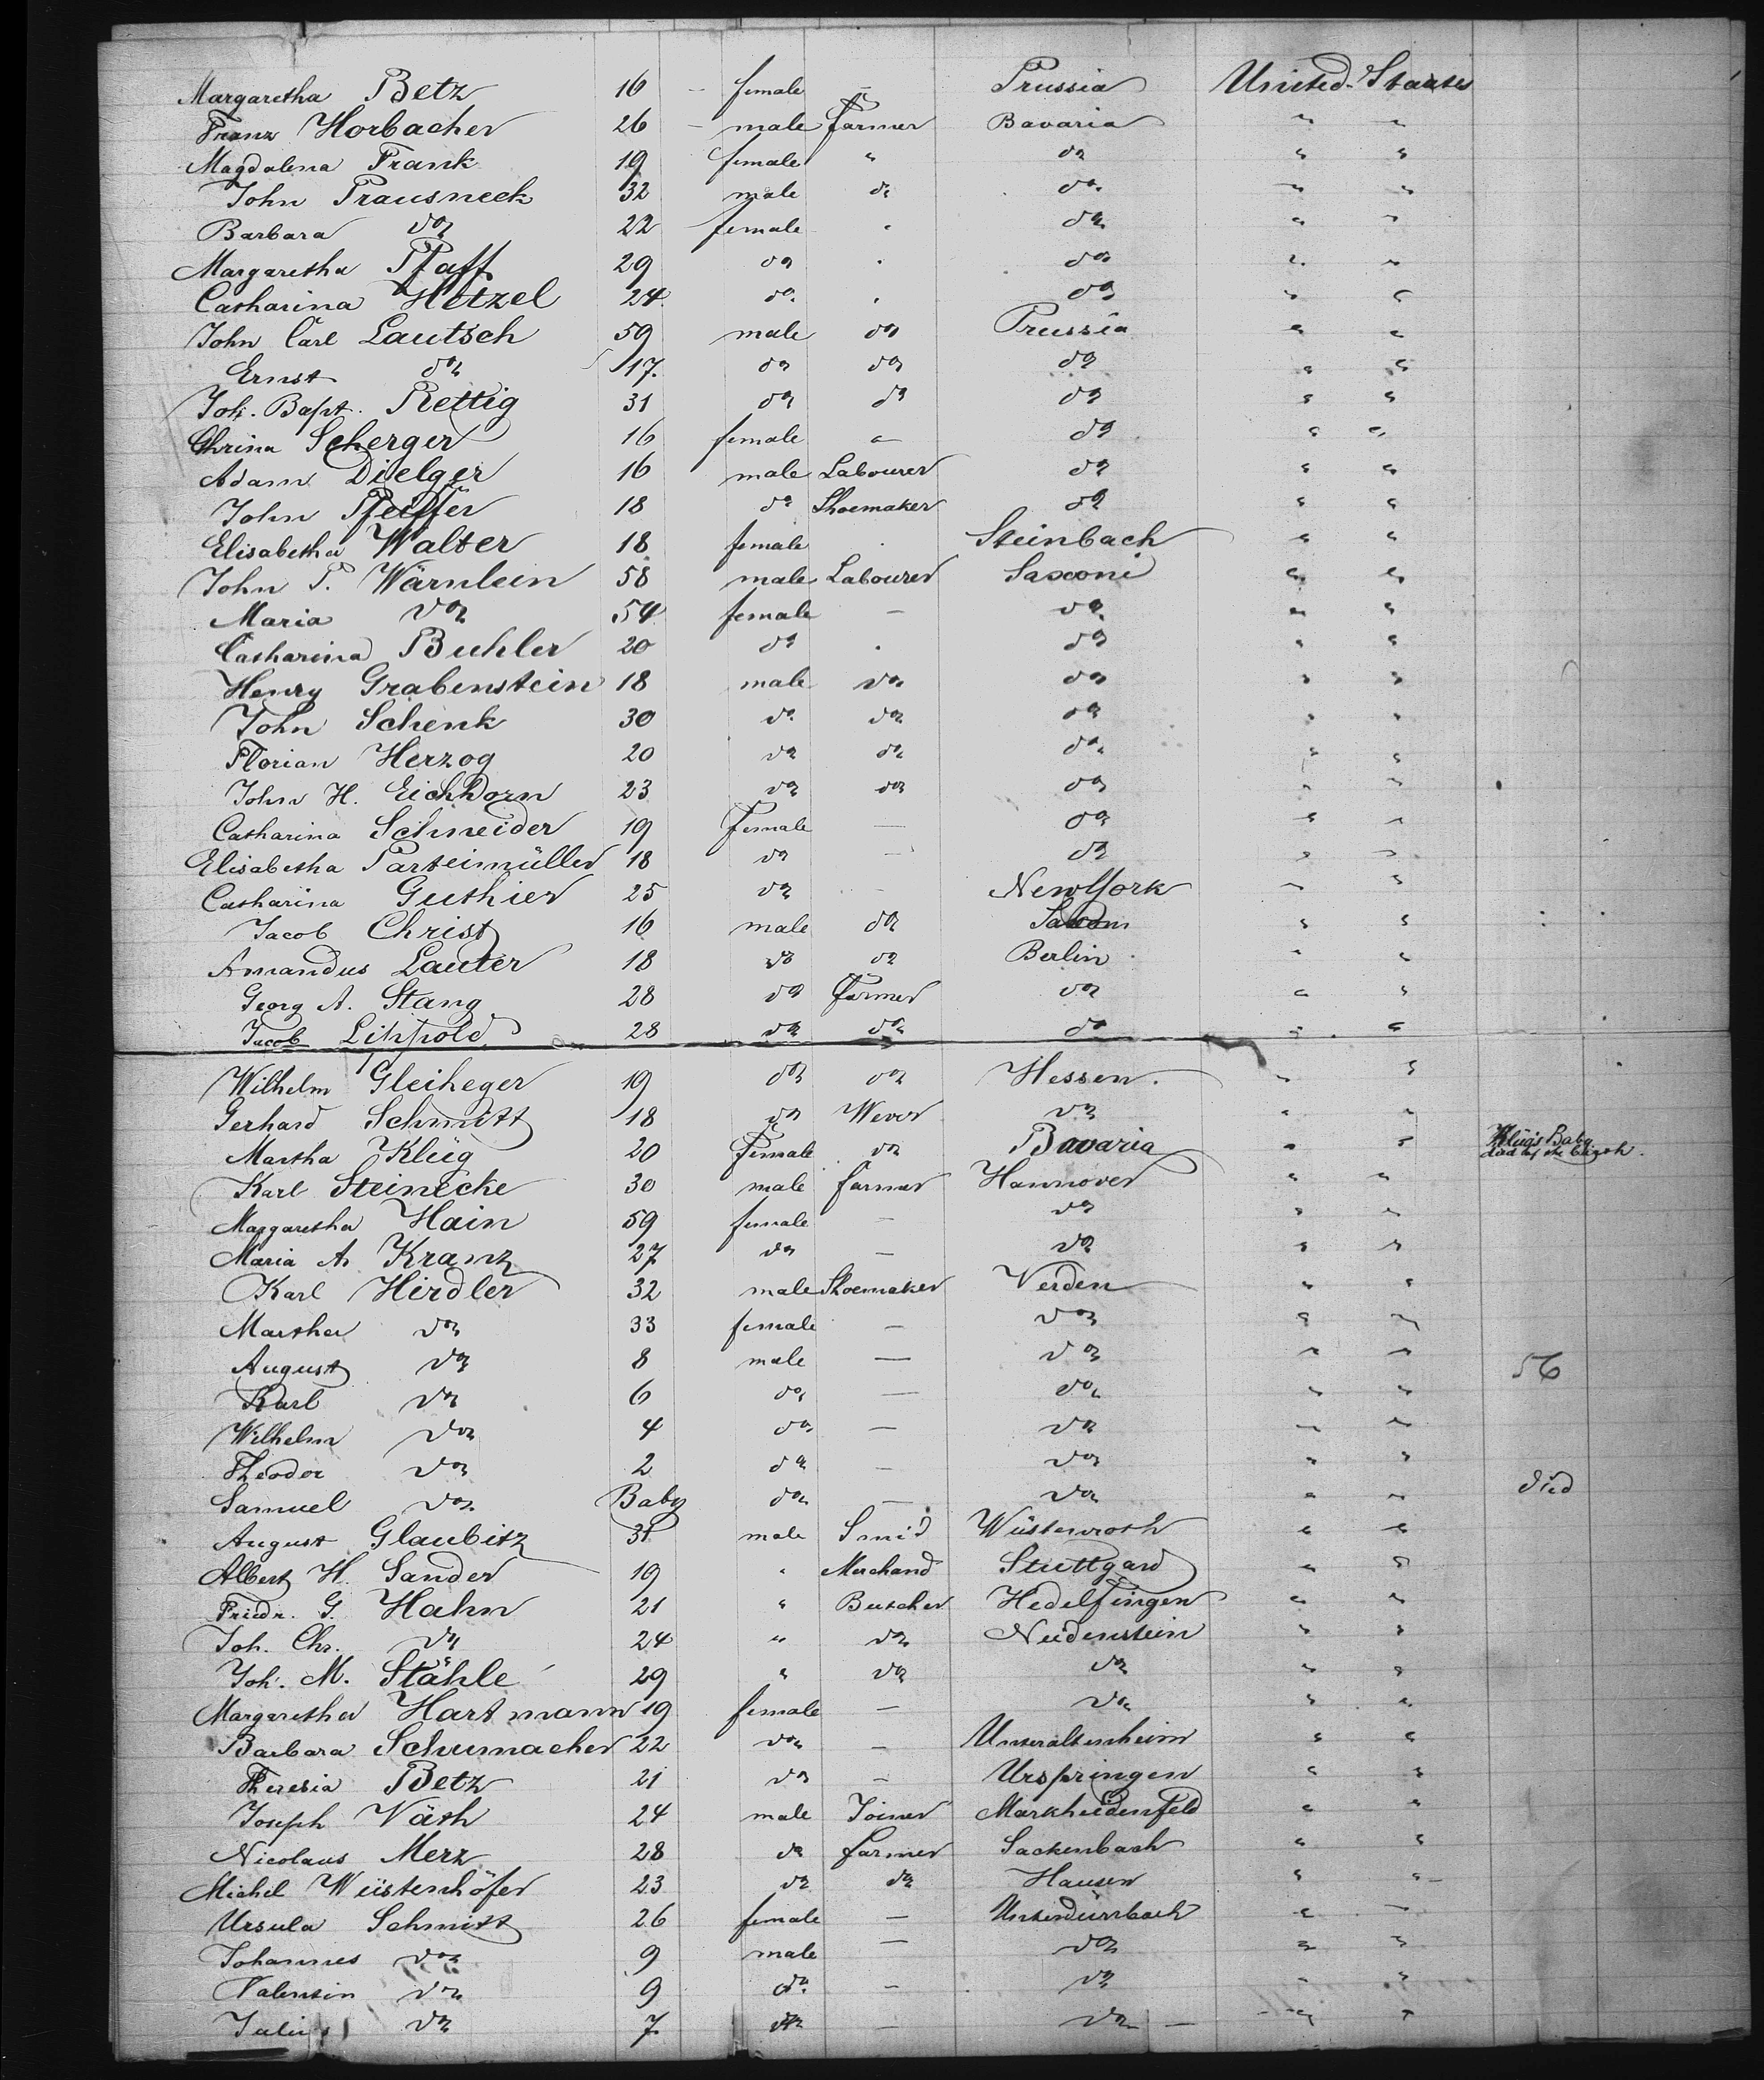 Margaretha Betz 16 – female – Prussia United States
Franz Horbacher 26 – male Farmer Bavaria " "
Magdalena Frank 19 female " do " "
John Prausneck 32 male do do " "
Barbara do 22 female " do " "
Margaretha Pfaff 29 do " do " "
Catharina Hetzel 24 do " do " "
John Carl Lautsch 59 male do Prussia " "
Ernst do 17. do do do " "
Joh. Bapt. Rettig 31 do do do " "
Chrina Scherger 16 female " do " "
Adam Dielger 16 male Labourer do " "
John Pfeiffer 18 do Shoemaker do " "
Elisabetha Walter 18 female Steinbach " "
John P. Wärnlein 58 male Labourer Saxoni " "
Maria do 54 female – do " "
Catharina Buhler 20 do " do " "
Henry Grabenstein 18 male do do " "
John Schenk 30 do do do " "
Florian Herzog 20 do do do " "
John H. Eichhorn 23 do do do " "
Catharina Schneider 19 Female – do " "
Elisabetha Parteimüller 18 do – do " "
Catharina Guthier 25 do – New York " "
Jacob Christ 16 male do " "
Amandus Lauter 18 do do Berlin " "
Georg A. Stang 28 do Farmer do " "
Jacob Lippold 28 do do do " "
Wilhelm Gleiheger 19 do do Hessen. " "
Gerhard Schmitt 18 do Wever do " "
Martha Klüg 20 Female do Bavaria " " Klüg's Baby died
Karl Steinecke 30 male farmer Hannover " "
Margaretha Hain 59 female – do " "
Maria A. Kranz 27 do – do " "
Karl Hirdler 32 male Shoemaker Verden " "
Martha do 33 female – do " "
August do 8 male – do " " 56
Karl do 6 do – do " "
Wilhelm do 4 do – do " "
Theodor do 2 do – do " "
Samuel do Baby do – do " " died
August Glaubitz 31 male Smid Wüstenroth " "
Albert H. Sander 19 " Merchand Stuttgard " "
Friedr. G. Hahn 21 " Butcher Hedelfingen " "
Joh. Chr. do 24 " do Neidenstein " "
Joh. M. Stähle 29 " do do " "
Margaretha Hartmann 19 female – do " "
Barbara Schumacher 22 do – Unteraltenheim " "
Theresia Betz 21 do – Urspringen " "
Joseph Väth 24 male Joiner Markheidenfeld " "
Nicolaus Merz 28 do farmer Sackenbach " "
Michel Wüstenhöfer 23 do do Hausen " "
Ursula Schmitt 26 female – Unterdürrbach " "
Johannes do 9 male – do " "
Valentin do 9 do – do " "
Julius do 7 do – do " "